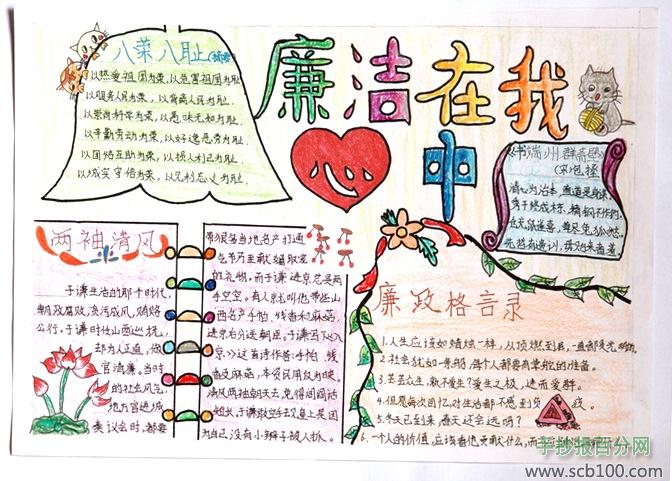 八荣八耻(摘要)
以热爱祖国为荣,以危害祖国为耻
以服务人民为荣,以背离人民为耻
以崇尚科学为荣,以愚昧无知为耻
以辛勤劳动为荣,以好逸恶劳为耻
以团结互助为荣,以损人利己为耻
以诚实守信为荣,以见利忘义为耻
廉洁在我
心中
《书端州郡斋壁》
(宋)包拯
清心为治本,直道是身谋。
秀干终成栋,精钢不作钩。
仓充鼠雀喜,草尽兔狐愁。
史册有遗训,
两袖清风
于谦生活的那个时代,
朝政腐败,贪污成风,贿赂
公行。于谦时任山西巡抚,
却为人正直,做
官清廉。当时
的社会风气,
地方官进城
奏议会时,都要
带很多当地名产打通
关节
的礼物。而于谦进京总是两
手空空。有人劝他带些山
西名产手帕、线香和麻菇,
进京后分送朝臣。于谦写下《入
京》这首诗作答:手帕、线
香及麻菇,本资民用反为殃。
清风两袖朝天去,免得闾阎话
短长。
为自己没有小辫子被人抓。
廉政格言录
1.人生应该如蜡烛一样,从顶燃到底,一直都是光明的。
2.社会犹如一条船,每个人都要有掌舵的准备。
3.芸芸众生,孰不爱生?爱生之极,进而爱群。
4.但愿每次回忆,对生活都不感到负疚。
5.冬天已到来,春天还会远吗?
6.一个人的价值,应该看他贡献什么,而
手抄报百分网
www.scb100.com